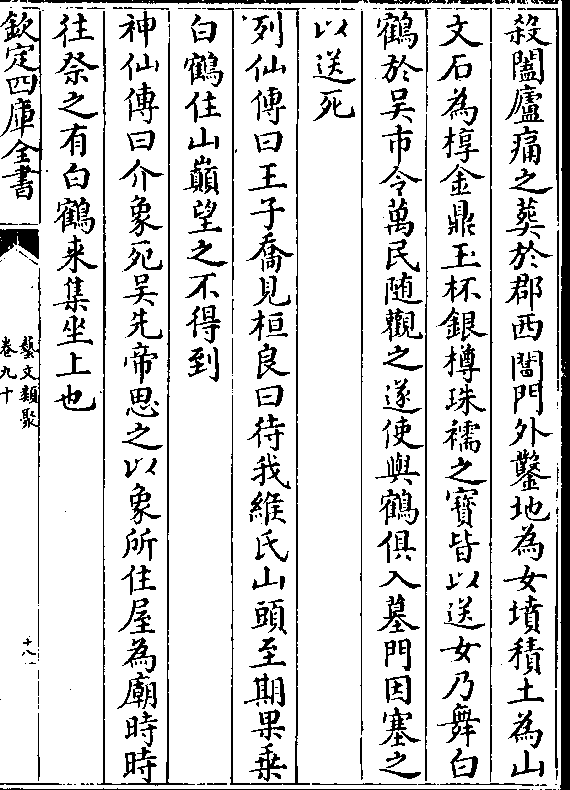 殺闔廬痛之葬於郡西閶門外鑿地為女墳積土為山
文石為椁金鼎玉杯銀樽珠襦之寶皆以送女乃舞白
鶴於吳市令萬民随觀之遂使與鶴俱入墓門因塞之
以送死
列仙傳曰王子喬見桓良曰待我緱氏山頭至期果乗
白鶴住山巔望之不得到
神仙傳曰介象死吳先帝思之以象所住屋為廟時時
往祭之有白鶴來集坐上也
欽定四庫全書
藝文類聚
卷九十
十八